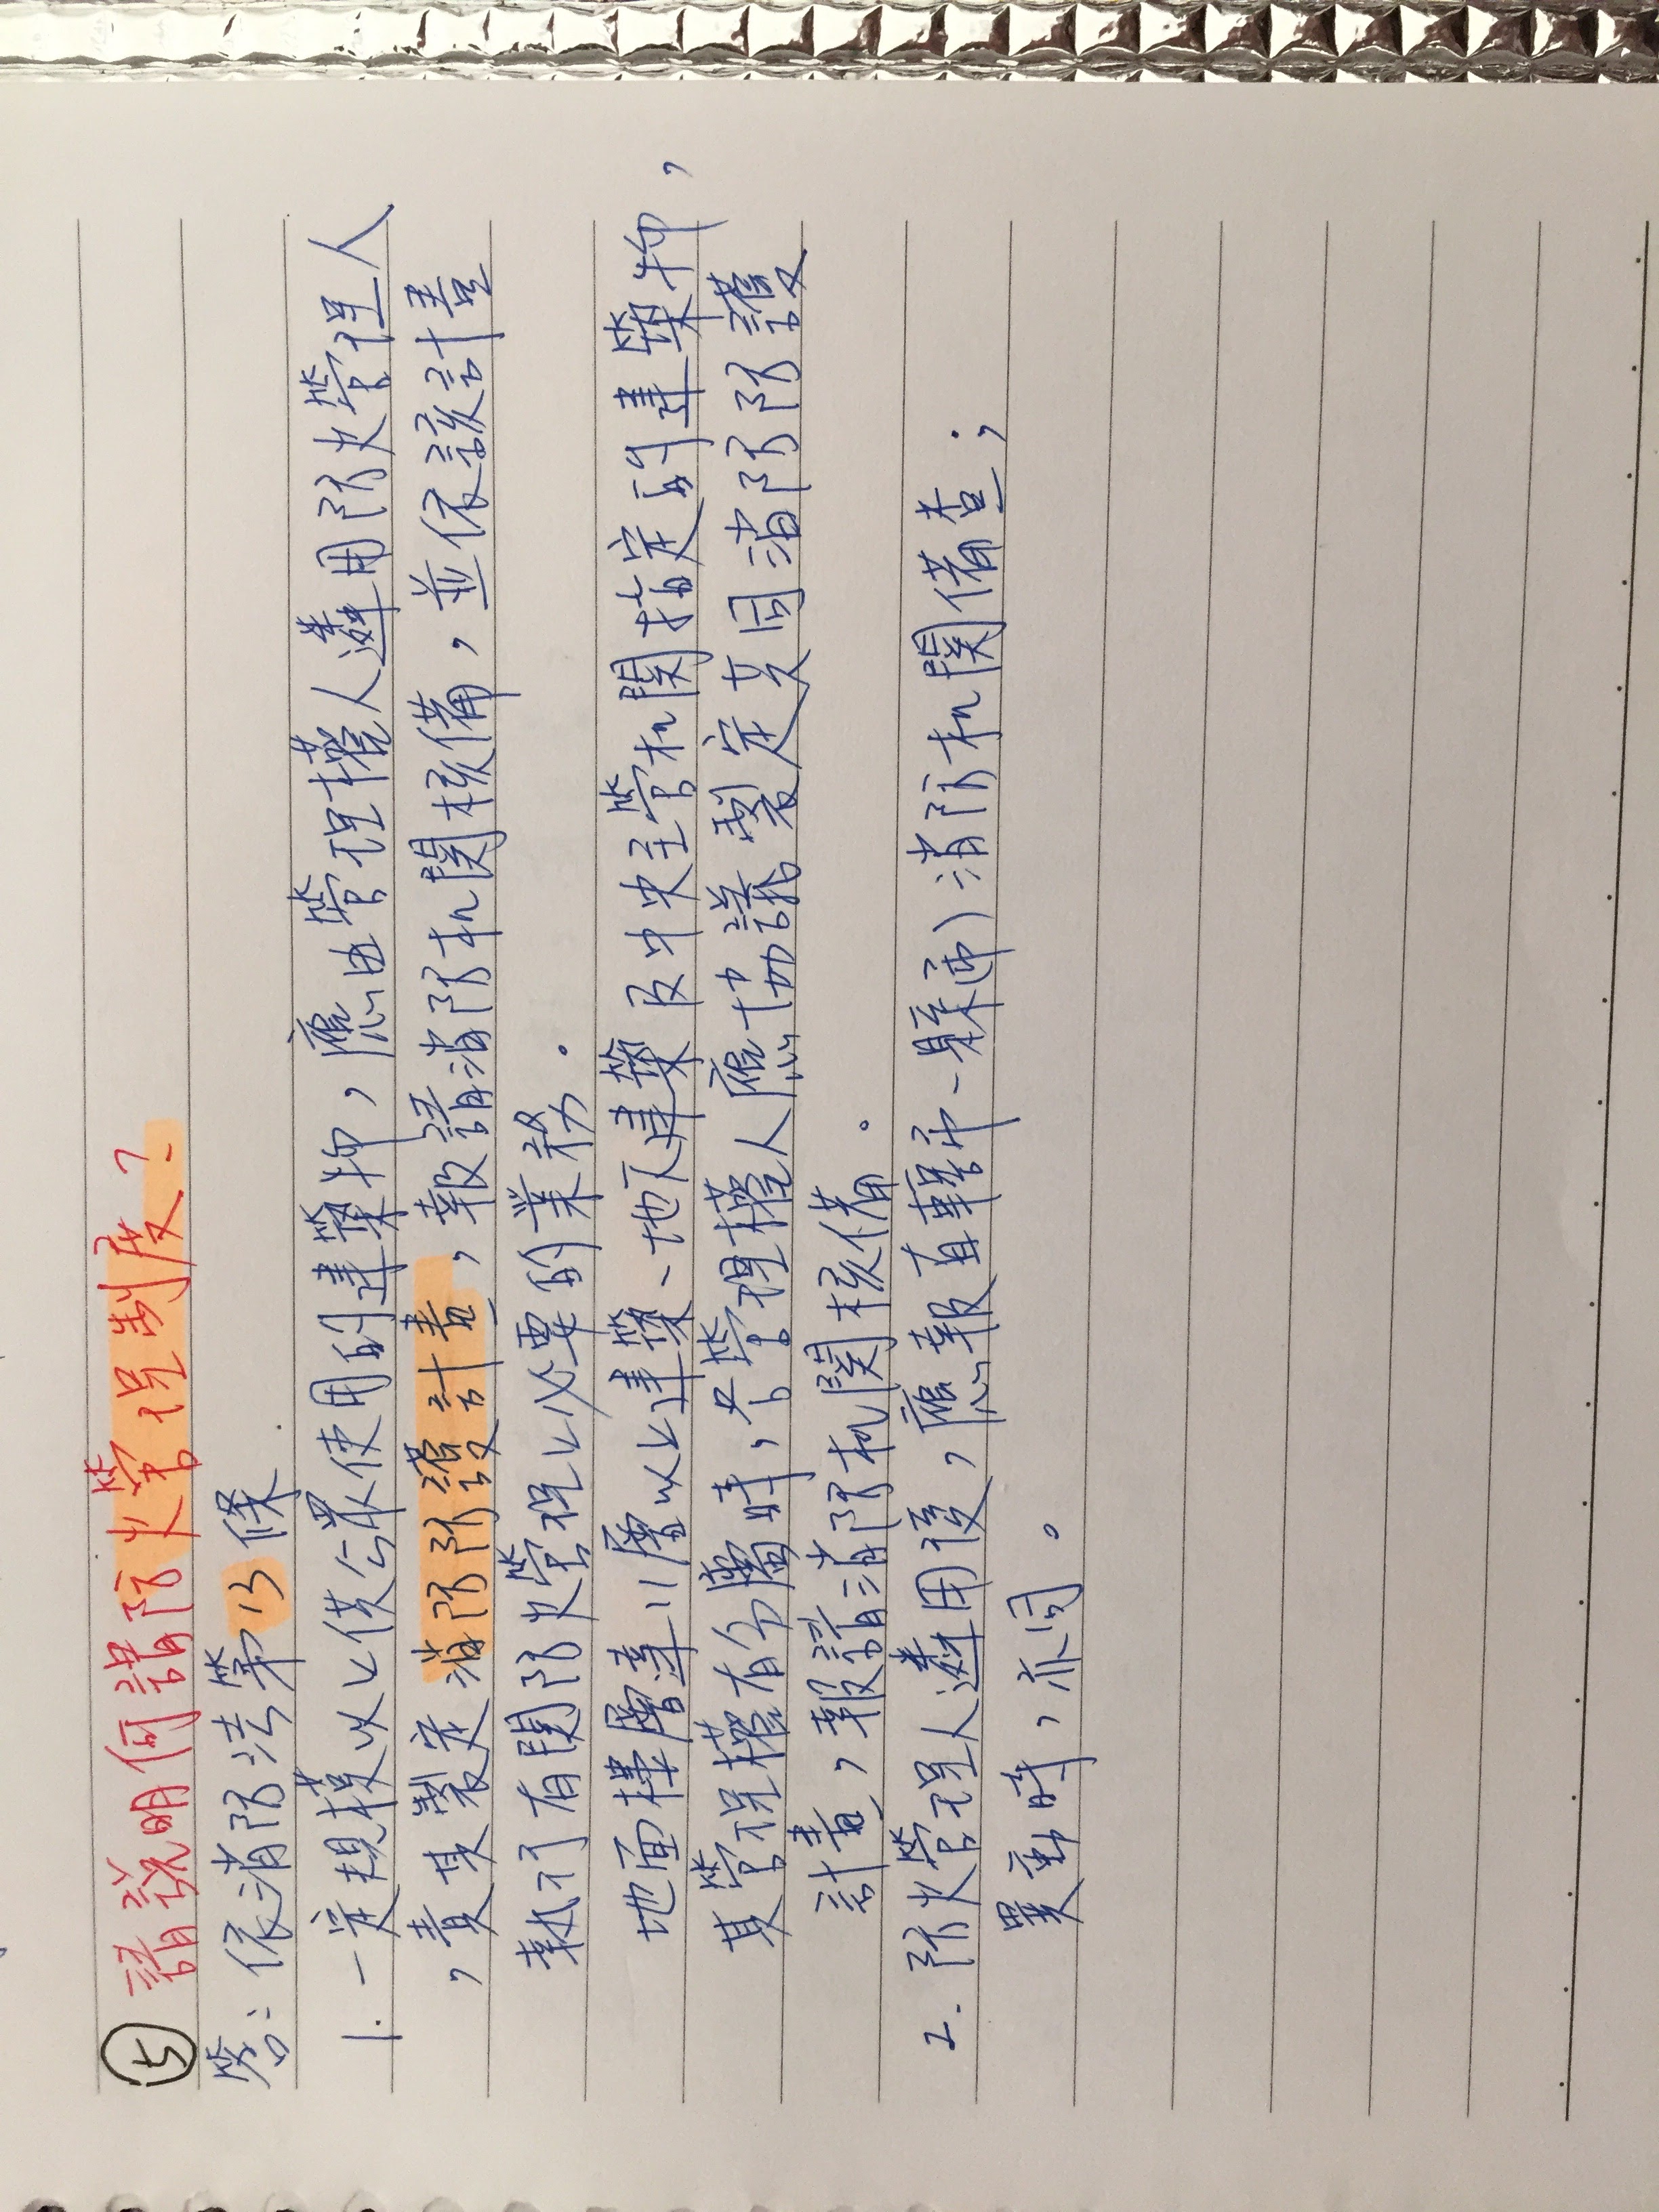 ⑤ 請說明何謂防火管理制度?
答：依消防法第13條
1. 一定規模以上供公眾使用的建築物，應由管理權人遴用防火管理人
，責其製定消防防護計畫，報請消防机関核備，並依該計畫
執行有関防火管理上必要的業務。
地面樓層達11層以上建築、地下建築及中央主管机関指定的建築物，
其管理權有分屬時，各管理權人應協議製定共同消防防護
計畫，報請消防机関核備。
2. 防火管理人遴用後，應報直轄市、縣(市)消防机関備查；
異動時，亦同。